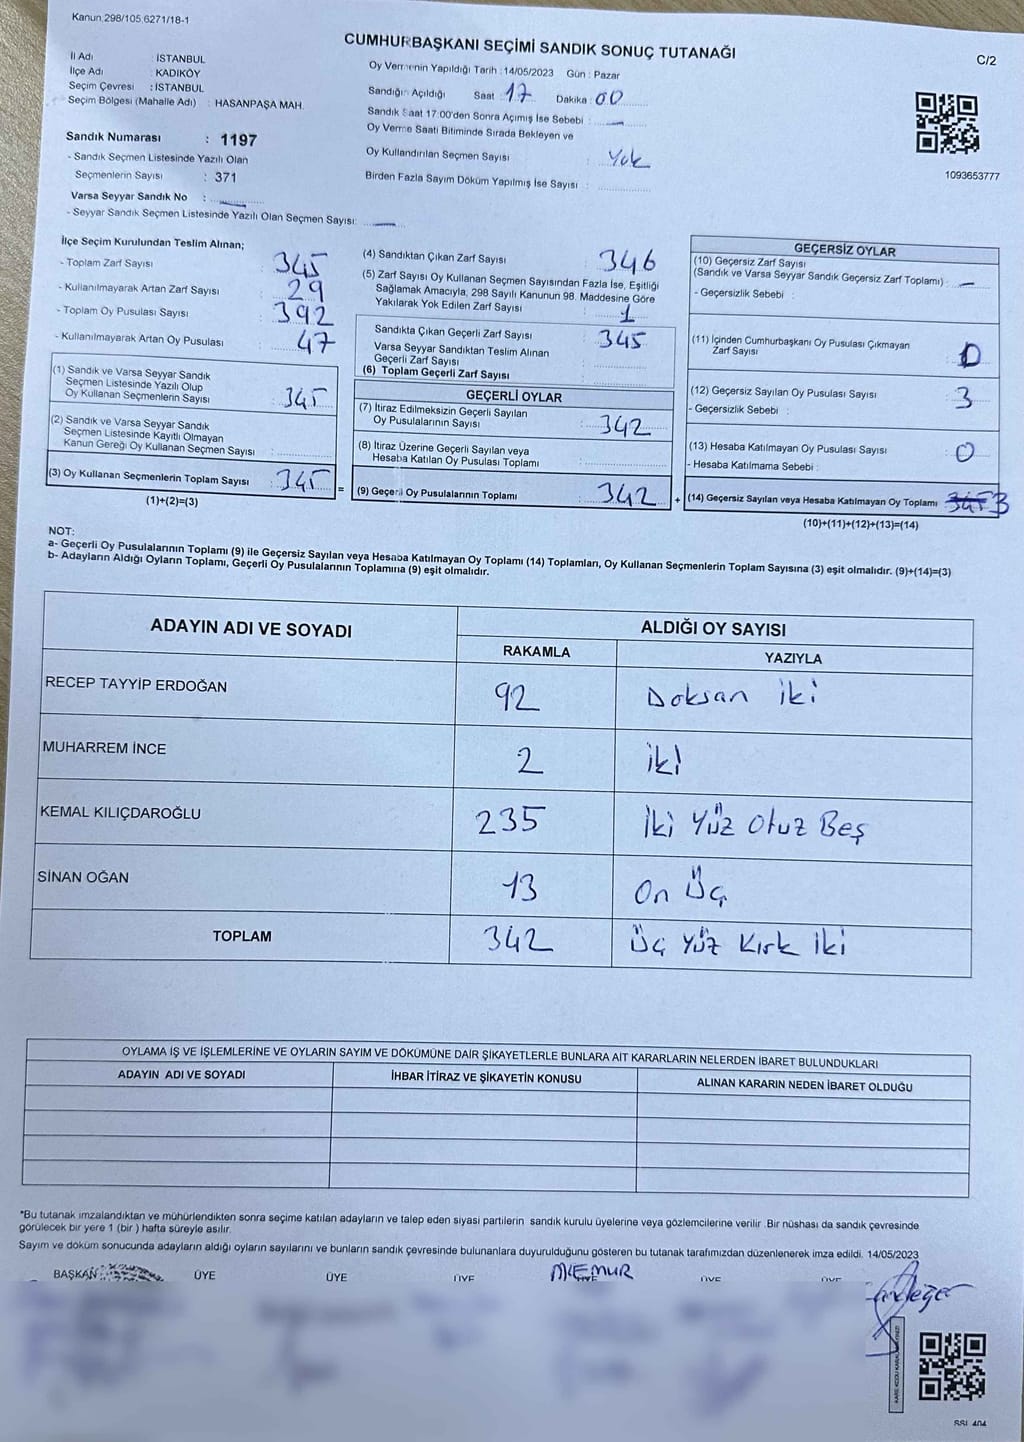 Kanun 298/105.6271/18-1
CUMHURBAŞKANI SEÇİMİ SANDIK SONUÇ TUTANAĞI
C/2
İl Adı : İSTANBUL
İlçe Adı : KADIKÖY
Seçim Çevresi : İSTANBUL
Seçim Bölgesi (Mahalle Adı) : HASANPAŞA MAH.
Oy Vermenin Yapıldığı Tarih : 14/05/2023 Gün : Pazar
Sandığın Açıldığı Saat : 17 Dakika : 00
Sandık Saat 17:00'den Sonra Açımış İse Sebebi : —
Oy Verme Saati Bitiminde Sırada Bekleyen ve
Oy Kullandırılan Seçmen Sayısı : Yok
Birden Fazla Sayım Döküm Yapılmış İse Sayısı :
1093653777
Sandık Numarası : 1197
- Sandık Seçmen Listesinde Yazılı Olan
Seçmenlerin Sayısı : 371
Varsa Seyyar Sandık No : —
- Seyyar Sandık Seçmen Listesinde Yazılı Olan Seçmen Sayısı: —
İlçe Seçim Kurulundan Teslim Alınan;
- Toplam Zarf Sayısı : 345
- Kullanılmayarak Artan Zarf Sayısı : 29
- Toplam Oy Pusulası Sayısı : 392
- Kullanılmayarak Artan Oy Pusulası : 47
(1) Sandık ve Varsa Seyyar Sandık
Seçmen Listesinde Yazılı Olup
Oy Kullanan Seçmenlerin Sayısı : 345
(2) Sandık ve Varsa Seyyar Sandık
Seçmen Listesinde Kayıtlı Olmayan
Kanun Gereği Oy Kullanan Seçmen Sayısı :
(3) Oy Kullanan Seçmenlerin Toplam Sayısı : 345
(1)+(2)=(3)
(4) Sandıktan Çıkan Zarf Sayısı : 346
(5) Zarf Sayısı Oy Kullanan Seçmen Sayısından Fazla İse, Eşitliği
Sağlamak Amacıyla, 298 Sayılı Kanunun 98. Maddesine Göre
Yakılarak Yok Edilen Zarf Sayısı : 1
Sandıkta Çıkan Geçerli Zarf Sayısı : 345
Varsa Seyyar Sandıktan Teslim Alınan
Geçerli Zarf Sayısı :
(6) Toplam Geçerli Zarf Sayısı :
GEÇERLİ OYLAR
(7) İtiraz Edilmeksizin Geçerli Sayılan
Oy Pusulalarının Sayısı : 342
(8) İtiraz Üzerine Geçerli Sayılan veya
Hesaba Katılan Oy Pusulası Toplamı :
= (9) Geçerli Oy Pusulalarının Toplamı : 342
GEÇERSİZ OYLAR
(10) Geçersiz Zarf Sayısı
(Sandık ve Varsa Seyyar Sandık Geçersiz Zarf Toplamı) : —
- Geçersizlik Sebebi :
(11) İçinden Cumhurbaşkanı Oy Pusulası Çıkmayan
Zarf Sayısı : 0
(12) Geçersiz Sayılan Oy Pusulası Sayısı : 3
- Geçersizlik Sebebi :
(13) Hesaba Katılmayan Oy Pusulası Sayısı : 0
- Hesaba Katılmama Sebebi :
+ (14) Geçersiz Sayılan veya Hesaba Katılmayan Oy Toplamı 3
(10)+(11)+(12)+(13)=(14)
NOT:
a- Geçerli Oy Pusulalarının Toplamı (9) ile Geçersiz Sayılan veya Hesaba Katılmayan Oy Toplamı (14) Toplamları, Oy Kullanan Seçmenlerin Toplam Sayısına (3) eşit olmalıdır. (9)+(14)=(3)
b- Adayların Aldığı Oyların Toplamı, Geçerli Oy Pusulalarının Toplamına (9) eşit olmalıdır.
ADAYIN ADI VE SOYADI ALDIĞI OY SAYISI
RAKAMLA YAZIYLA
RECEP TAYYİP ERDOĞAN 92 Doksan iki
MUHARREM İNCE 2 iki
KEMAL KILIÇDAROĞLU 235 İki Yüz Otuz Beş
SİNAN OĞAN 13 On Üç
TOPLAM 342 Üç Yüz Kırk İki
OYLAMA İŞ VE İŞLEMLERİNE VE OYLARIN SAYIM VE DÖKÜMÜNE DAİR ŞİKAYETLERLE BUNLARA AİT KARARLARIN NELERDEN İBARET BULUNDUKLARI
ADAYIN ADI VE SOYADI İHBAR İTİRAZ VE ŞİKAYETİN KONUSU ALINAN KARARIN NEDEN İBARET OLDUĞU
*Bu tutanak imzalandıktan ve mühürlendikten sonra seçime katılan adayların ve talep eden siyasi partilerin sandık kurulu üyelerine veya gözlemcilerine verilir .Bir nüshası da sandık çevresinde
görülecek bir yere 1 (bir ) hafta süreyle asılır.
Sayım ve döküm sonucunda adayların aldığı oyların sayılarını ve bunların sandık çevresinde bulunanlara duyurulduğunu gösteren bu tutanak tarafımızdan düzenlenerek imza edildi. 14/05/2023
BAŞKAN ÜYE ÜYE ÜYE MEMUR ÜYE ÜYE